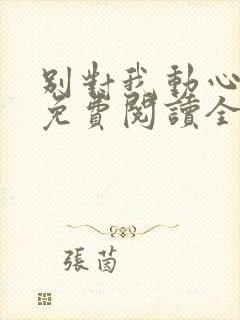 別對我動心
免費閱讀全
張茵